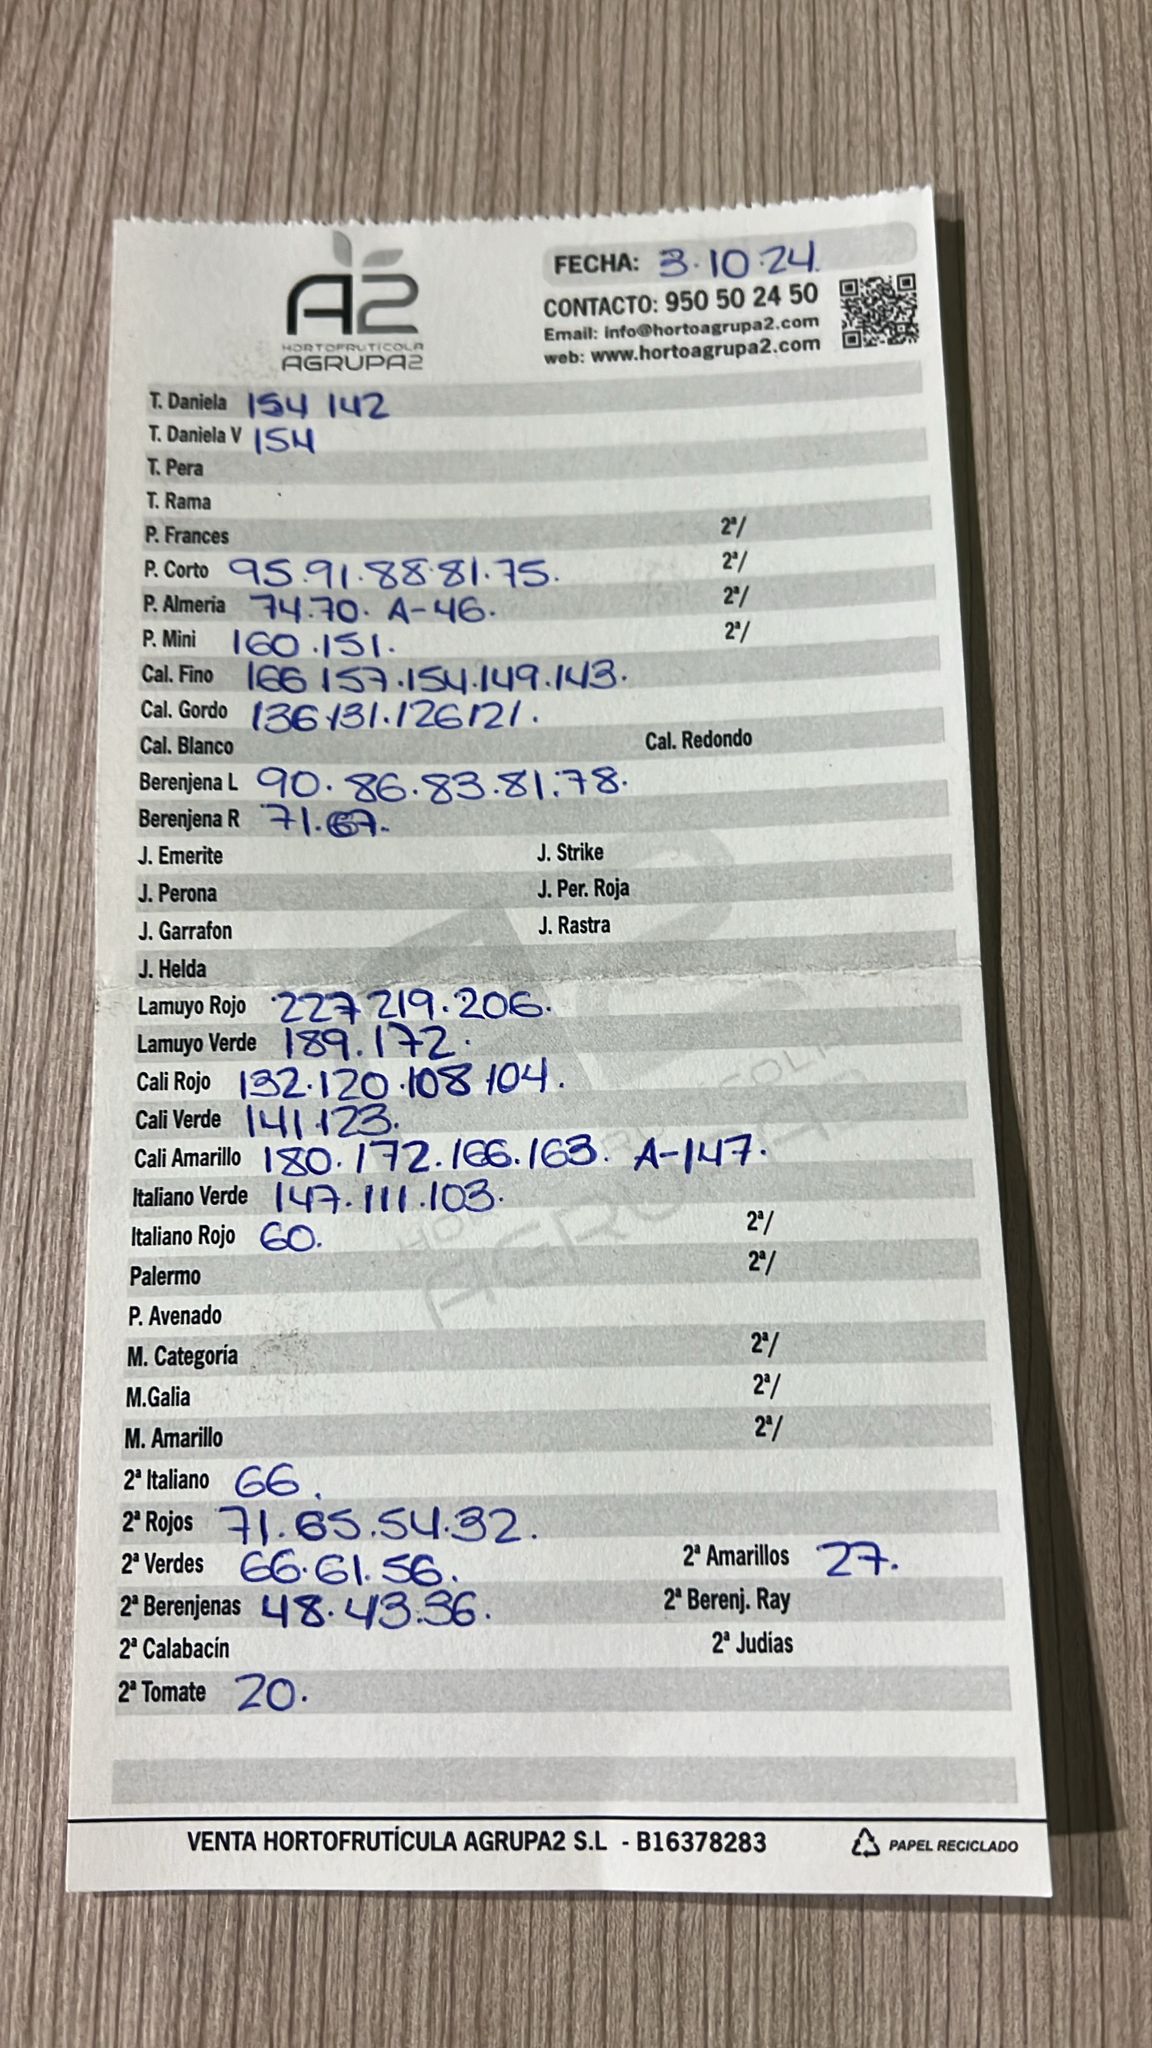 A2
HORTOFRUTÍCOLA
AGRUPA2
FECHA: 3.10.24.
CONTACTO: 950 50 24 50
Email: info@hortoagrupa2.com
web: www.hortoagrupa2.com
T. Daniela 154 142
T. Daniela V 154
T. Pera
T. Rama
P. Frances 2ª/
P. Corto 95.91.88.81.75. 2ª/
P. Almería 74.70. A-46. 2ª/
P. Mini 160.151. 2ª/
Cal. Fino 166 157.154.149.143.
Cal. Gordo 136.131.126121.
Cal. Blanco Cal. Redondo
Berenjena L 90.86.83.81.78.
Berenjena R 71.67.
J. Emerite J. Strike
J. Perona J. Per. Roja
J. Garrafon J. Rastra
J. Helda
Lamuyo Rojo 227 219.206.
Lamuyo Verde 189.172.
Cali Rojo 132.120.108 104.
Cali Verde 141.123.
Cali Amarillo 180.172.166.163. A-147.
Italiano Verde 147.111.103.
Italiano Rojo 60. 2ª/
Palermo 2ª/
P. Avenado
M. Categoría 2ª/
M.Galia 2ª/
M. Amarillo 2ª/
2ª Italiano 66.
2ª Rojos 71.65.54.32.
2ª Verdes 66.61.56. 2ª Amarillos 27.
2ª Berenjenas 48.43.36. 2ª Berenj. Ray
2ª Calabacín 2ª Judías
2ª Tomate 20.
VENTA HORTOFRUTÍCULA AGRUPA2 S.L - B16378283 PAPEL RECICLADO